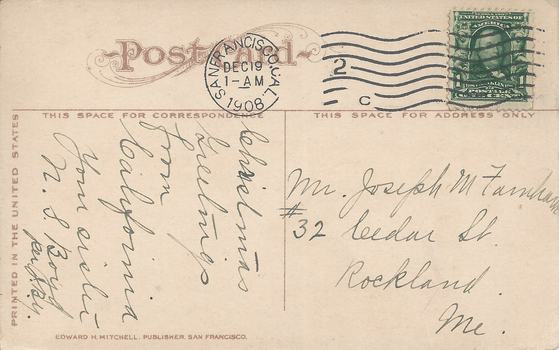 Post Card
SAN FRANCISCO, CAL.
DEC 19
1-AM
1908
2
C
UNITED STATES OF
AMERICA
1
POSTAGE
THIS SPACE FOR CORRESPONDENCE
THIS SPACE FOR ADDRESS ONLY
PRINTED IN THE UNITED STATES
Christmas
Greetings
from
California
Your sister
N. S Boyd
Mr. Joseph M Farnham
#32 Cedar St.
Rockland
Me.
EDWARD H. MITCHELL, PUBLISHER, SAN FRANCISCO.